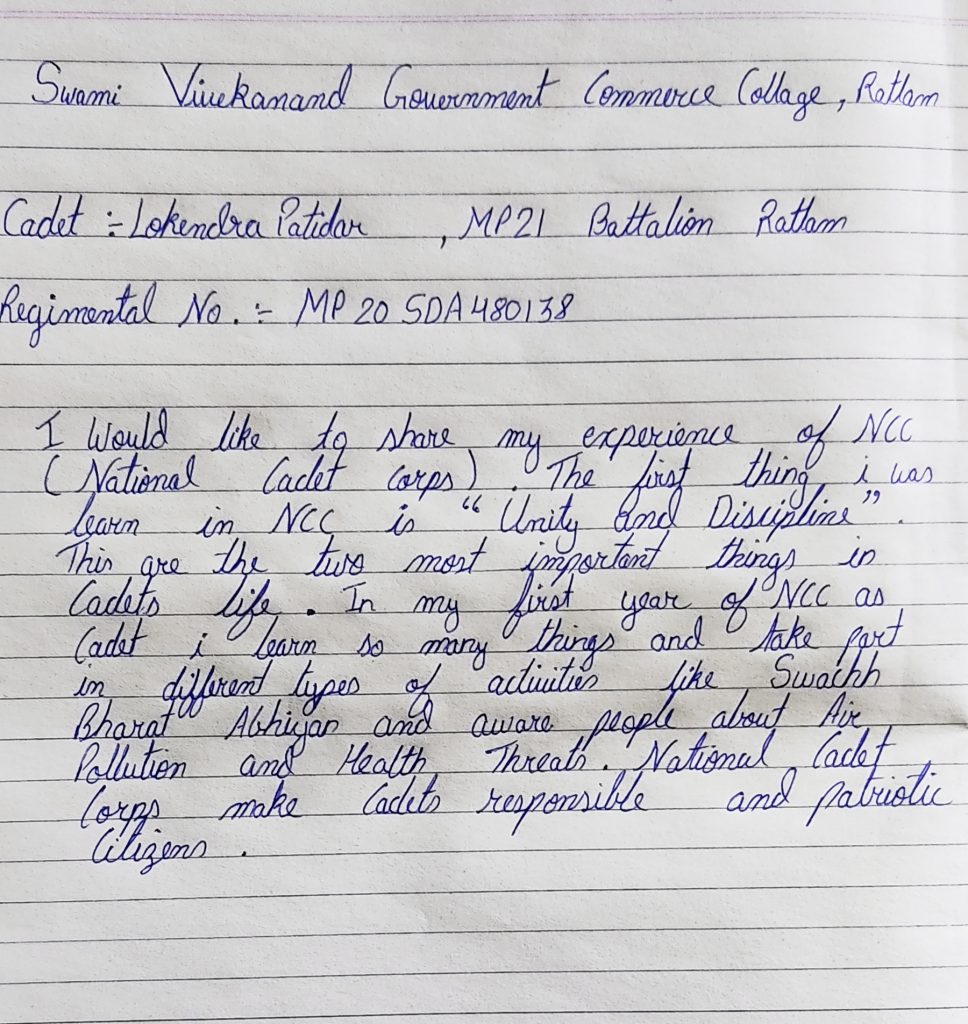 Swami Vivekanand Government Commerce Collage, Ratlam
Cadet :- Lokendra Patidar , MP21 Battalion Ratlam
Regimental No. :- MP 20 SDA 480138
I Would like to share my experience of NCC
( National Cadet Corps) . The first thing i was
learn in NCC is “ Unity and Discipline”.
This are the two most important things in
Cadets life . In my first year of NCC as
Cadet i learn so many things and take part
in different types of activities like Swachh
Bharat Abhiyan and aware people about Air
Pollution and Health Threats. National Cadet
Corps make Cadets responsible and patriotic
Citizens .